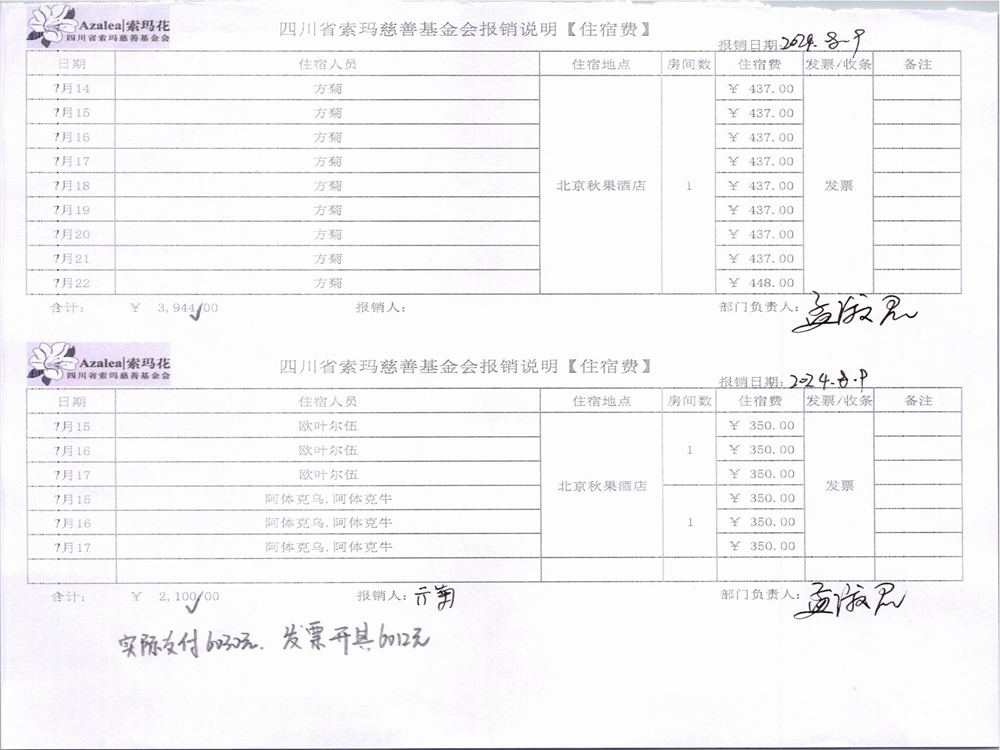 Azalea|索玛花
四川省索玛慈善基金会
四川省索玛慈善基金会报销说明【住宿费】
报销日期: 2024.8.9
日期 住宿人员 住宿地点 房间数 住宿费 发票/收条 备注
7月14 方菊 ¥ 437.00
7月15 方菊 ¥ 437.00
7月16 方菊 ¥ 437.00
7月17 方菊 ¥ 437.00
7月18 方菊 北京秋果酒店 1 ¥ 437.00 发票
7月19 方菊 ¥ 437.00
7月20 方菊 ¥ 437.00
7月21 方菊 ¥ 437.00
7月22 方菊 ¥ 448.00
合计: ¥ 3,944.00 报销人: 部门负责人: 孟淑君
Azalea|索玛花
四川省索玛慈善基金会
四川省索玛慈善基金会报销说明【住宿费】
报销日期: 2024.8.9
日期 住宿人员 住宿地点 房间数 住宿费 发票/收条 备注
7月15 欧叶尔伍 ¥ 350.00
7月16 欧叶尔伍 1 ¥ 350.00
7月17 欧叶尔伍 ¥ 350.00
北京秋果酒店 发票
7月15 阿体克乌.阿体克牛 ¥ 350.00
7月16 阿体克乌.阿体克牛 1 ¥ 350.00
7月17 阿体克乌.阿体克牛 ¥ 350.00
合计: ¥ 2,100.00 报销人: 方菊 部门负责人: 孟淑君
实际支付6030元. 发票开具6012元